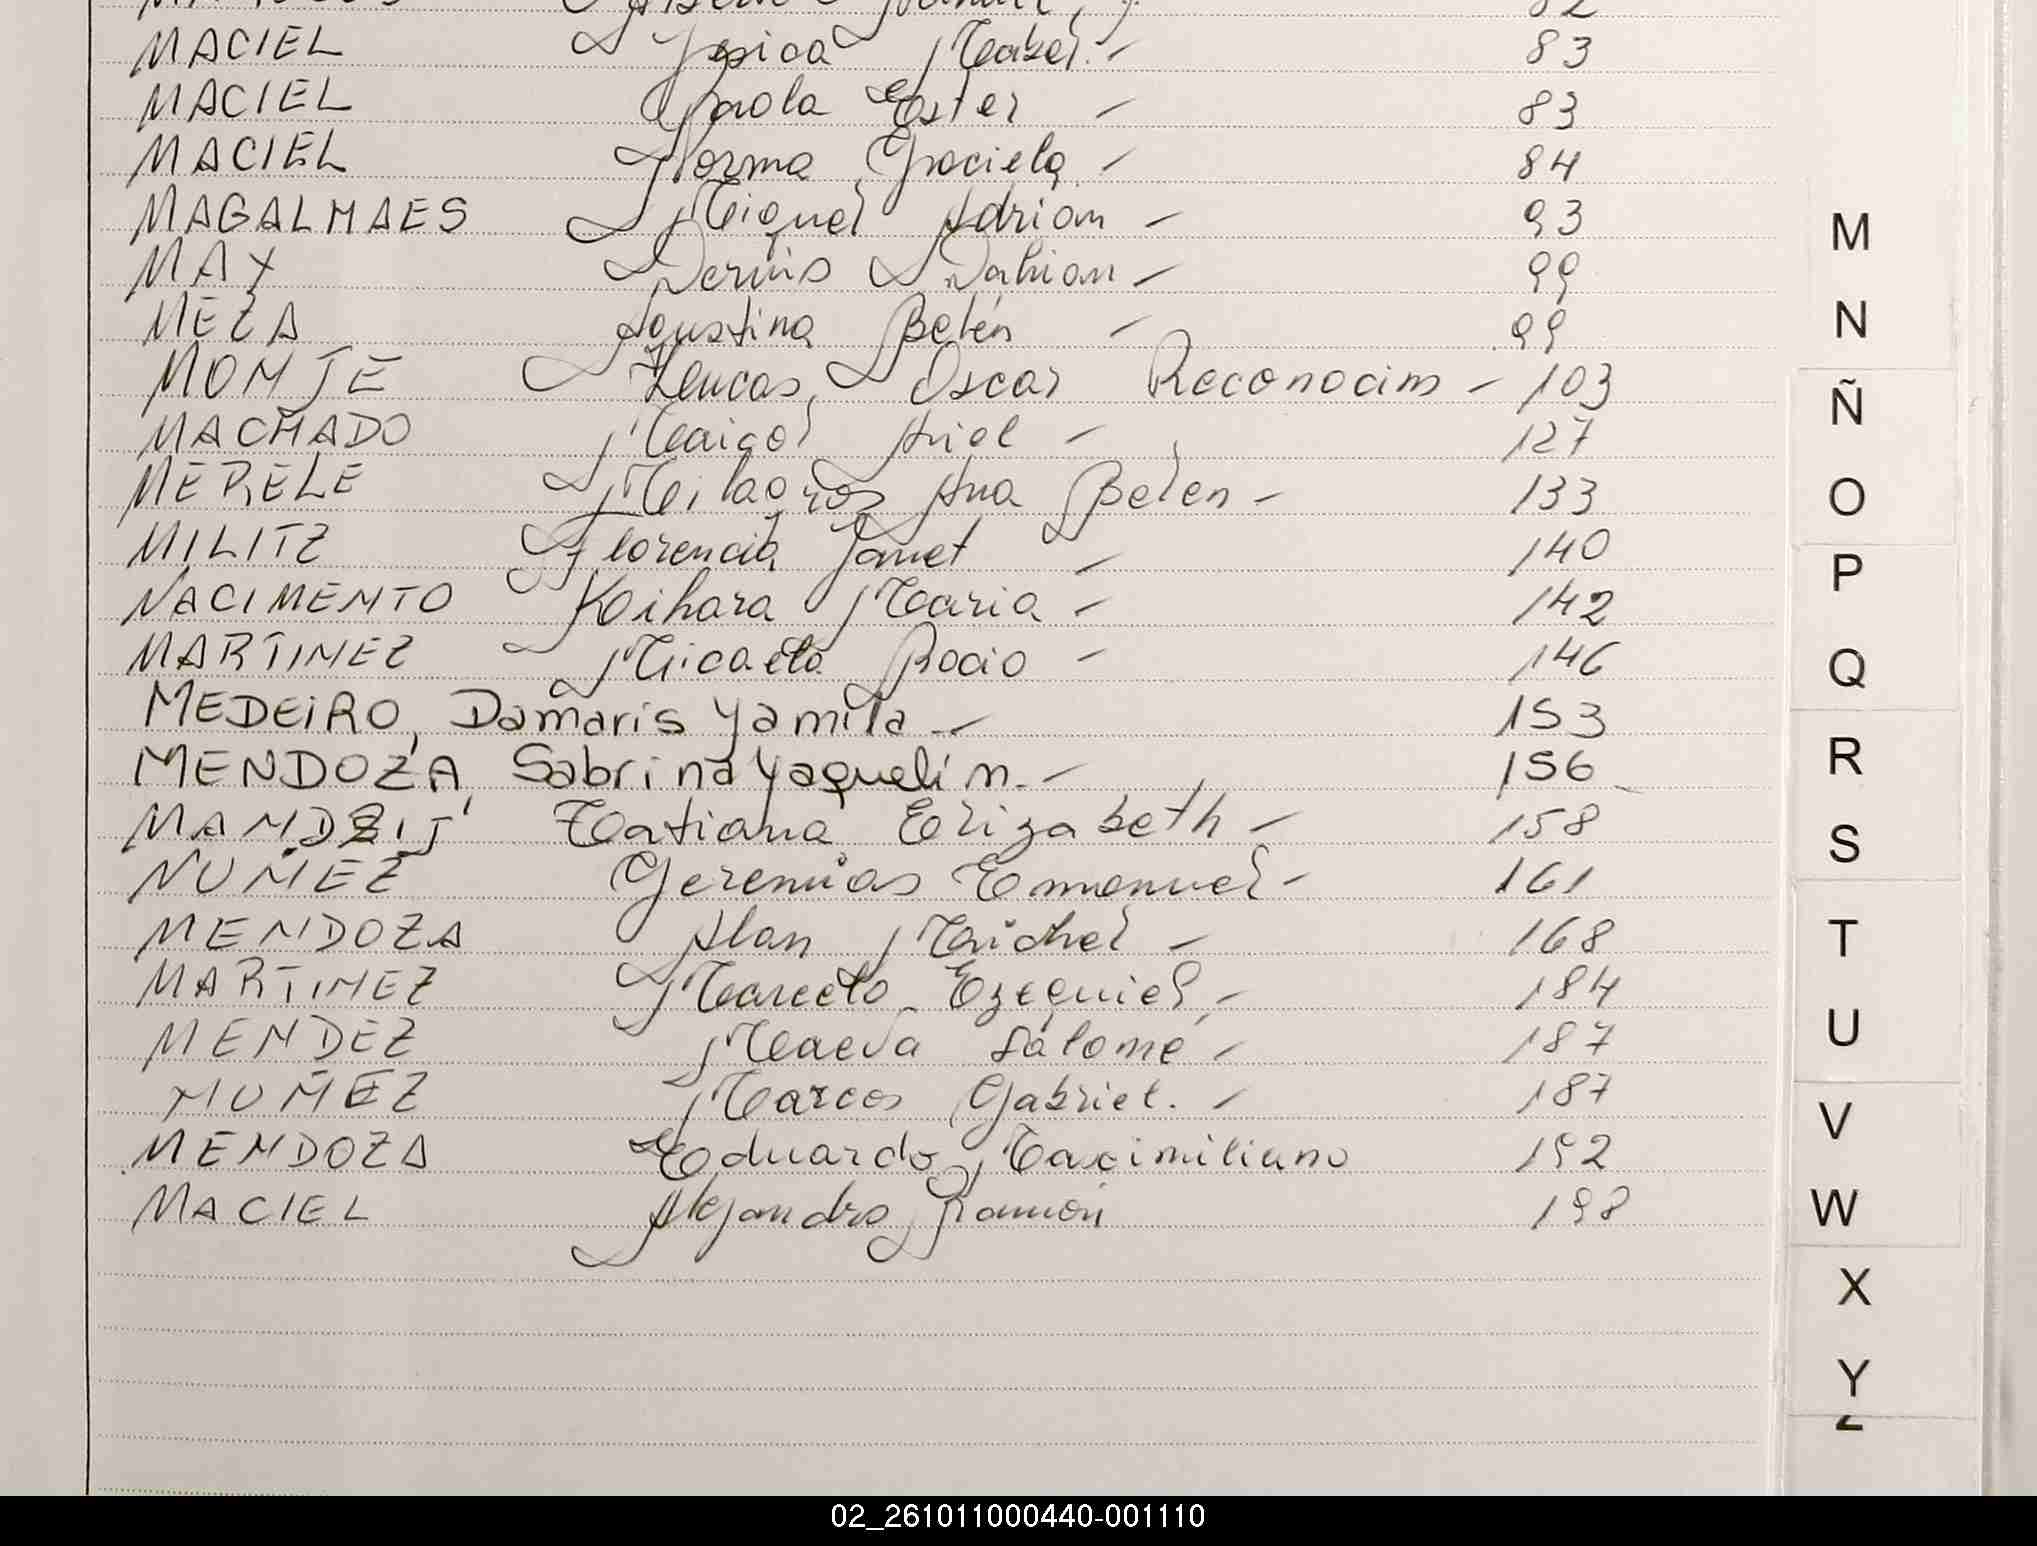 82
MACIEL Yesica Mabel. - 83
MACIEL Paola Ester - 83
MACIEL Norma Graciela - 84
MAGALHAES Miguel Adrian - 93
MAY Dennis Dahian - 99
MEZA Agustina Belén - 99
MONJE Lucas, Oscar Reconocim - 103
MACHADO Maicol Ariel - 127
MERELE Milagros Ana Belén - 133
MILITZ Florencia Janet - 140
NACIMENTO Keihara Maria - 142
MARTINEZ Micaela Rocio - 146
MEDEIRO, Damaris Yamila - 153
MENDOZA, Sabrina Yaquelin. - 156
Tatiana Elizabeth - 158
NUÑEZ Geremias Emanuel - 161
MENDOZA Alan Maichel - 168
MARTINEZ Marcelo Ezequiel - 184
MENDEZ Maeva Salomé - 187
MUÑEZ Marcos Gabriel. - 187
MENDOZA Eduardo Maximiliano 192
MACIEL Alejandro Ramón 198
M
N
Ñ
O
P
Q
R
S
T
U
V
W
X
Y
Z
02_261011000440-001110